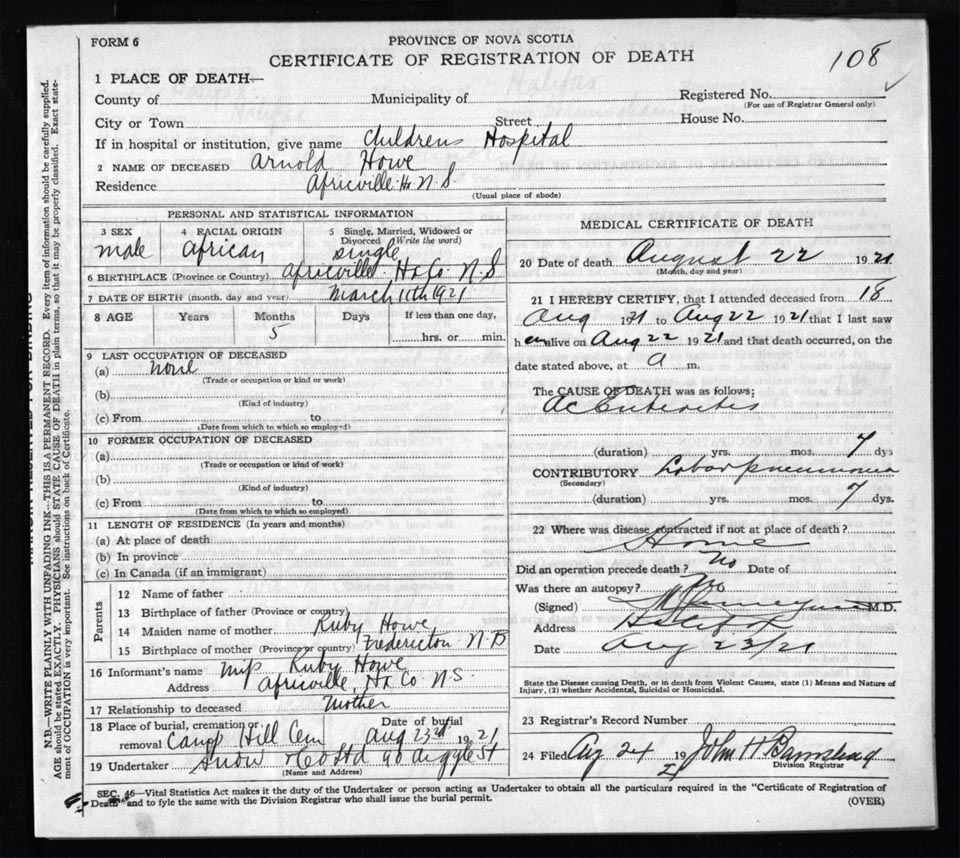 FORM 6
PROVINCE OF NOVA SCOTIA
CERTIFICATE OF REGISTRATION OF DEATH
108
1 PLACE OF DEATH—
County of Municipality of Registered No.
(For use of Registrar General only)
City or Town Street House No.
If in hospital or institution, give name Childrens Hospital
2 NAME OF DECEASED Arnold Howe
Residence Africville Hx N.S
(Usual place of abode)
PERSONAL AND STATISTICAL INFORMATION
3 SEX 4 RACIAL ORIGIN 5 Single, Married, Widowed or Divorced (Write the word)
male African single
6 BIRTHPLACE (Province or Country) Africville Hx Co N.S
7 DATE OF BIRTH (month, day and year) March 11th 1921
8 AGE Years Months Days If less than one day,
5 hrs. or min.
9 LAST OCCUPATION OF DECEASED
(a) None
(Trade or occupation or kind or work)
(b)
(Kind of industry)
(c) From to
(Date from which to which so employed)
10 FORMER OCCUPATION OF DECEASED
(a)
(Trade or occupation or kind of work)
(b)
(Kind of industry)
(c) From to
(Date from which to which so employed)
11 LENGTH OF RESIDENCE (In years and months)
(a) At place of death
(b) In province
(c) In Canada (if an immigrant)
Parents
12 Name of father
13 Birthplace of father (Province or country)
14 Maiden name of mother Ruby Howe
15 Birthplace of mother (Province or country) Fredericton N.B
16 Informant's name Ruby Howe
Address Africville, Hx Co N.S.
17 Relationship to deceased Mother
18 Place of burial, cremation or removal Camp Hill Cem Date of burial Aug 23rd 1921
19 Undertaker Snow & Co Ltd 90 Argyle St
(Name and Address)
MEDICAL CERTIFICATE OF DEATH
20 Date of death August 22 1921
(Month, day and year)
21 I HEREBY CERTIFY, that I attended deceased from 18
Aug 1921 to Aug 22 1921 that I last saw
h em alive on Aug 22 1921 and that death occurred, on the
date stated above, at a m.
The CAUSE OF DEATH was as follows:
Ac Enterites
(duration) yrs. mos. 7 dys
CONTRIBUTORY Lobar pneumonia
(Secondary)
(duration) yrs. mos. 7 dys.
22 Where was disease contracted if not at place of death?
Home
Did an operation precede death? No Date of
Was there an autopsy? No
(Signed) M.D.
Address Halifax
Date Aug 23/21
State the Disease causing Death, or in death from Violent Causes, state (1) Means and Nature of
Injury, (2) whether Accidental, Suicidal or Homicidal.
23 Registrar's Record Number
24 Filed Aug 24 192 John H Barnstead
Division Registrar
SEC. 46—Vital Statistics Act makes it the duty of the Undertaker or person acting as Undertaker to obtain all the particulars required in the "Certificate of Registration of
Death" and to fyle the same with the Division Registrar who shall issue the burial permit.
(OVER)
N.B.—WRITE PLAINLY WITH UNFADING INK—THIS IS A PERMANENT RECORD. Every item of information should be carefully supplied.
AGE should be stated EXACTLY. PHYSICIANS should STATE CAUSE OF DEATH in plain terms, so that it may be properly classified. Exact state-
ment of OCCUPATION is very important. See instructions on back of Certificate.